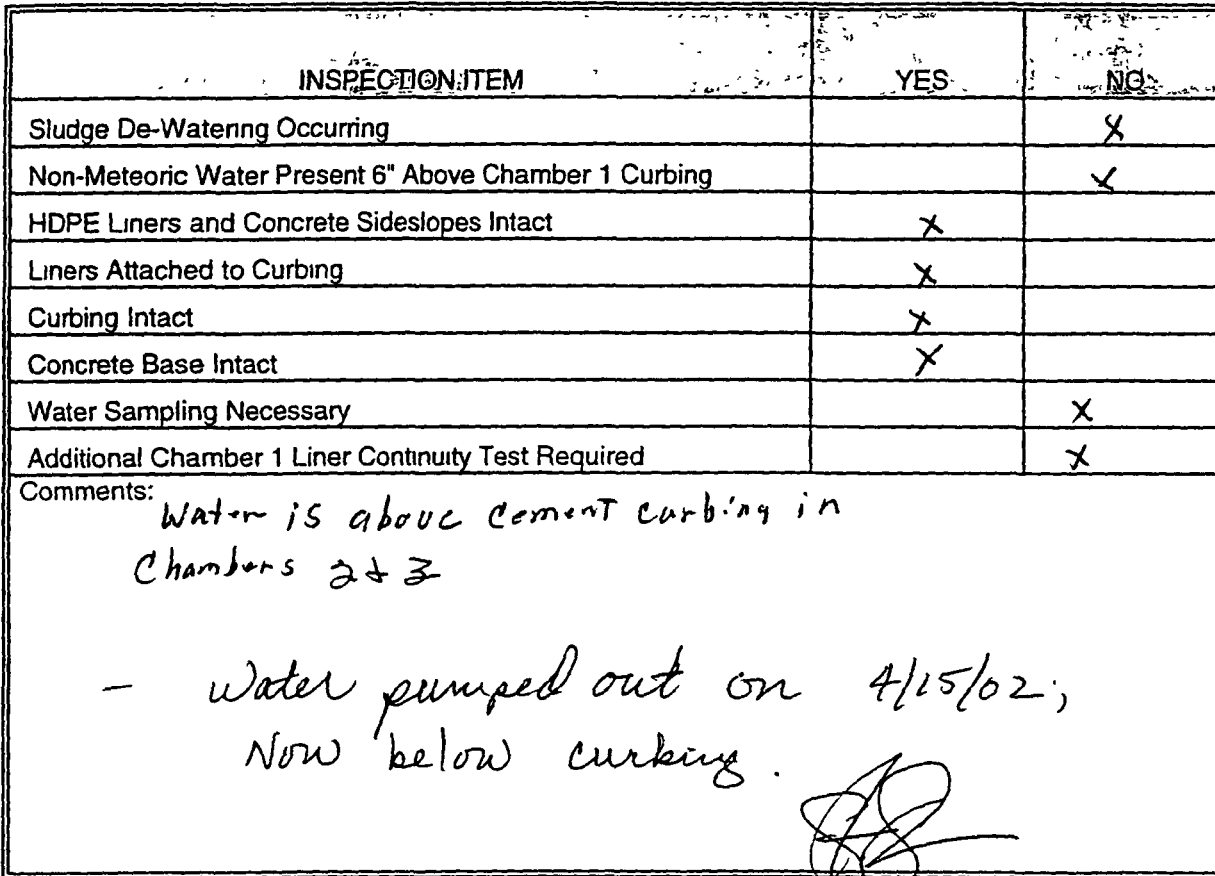 INSPECTION ITEM YES NO
Sludge De-Watering Occurring X
Non-Meteoric Water Present 6" Above Chamber 1 Curbing X
HDPE Liners and Concrete Sideslopes Intact X
Liners Attached to Curbing X
Curbing Intact X
Concrete Base Intact X
Water Sampling Necessary X
Additional Chamber 1 Liner Continuity Test Required X
Comments:
Water is above cement curbing in
Chambers 2 & 3
- Water pumped out on 4/15/02;
Now below curbing.